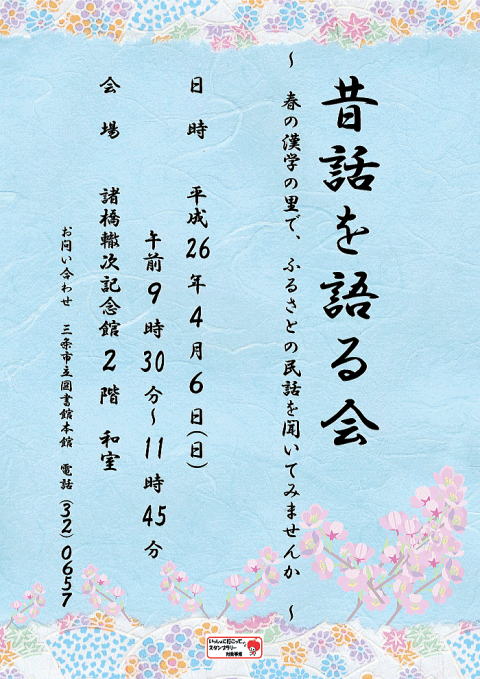 昔話を語る会
～ 春の漢学の里で、ふるさとの民話を聞いてみませんか ～
日時 平成26年4月6日(日)
午前9時30分～11時45分
会場 諸橋轍次記念館2階 和室
お問い合わせ 三条市立図書館本館 電話(32)0657
いっしょに行こってぃ
スタンプラリー
対象事業